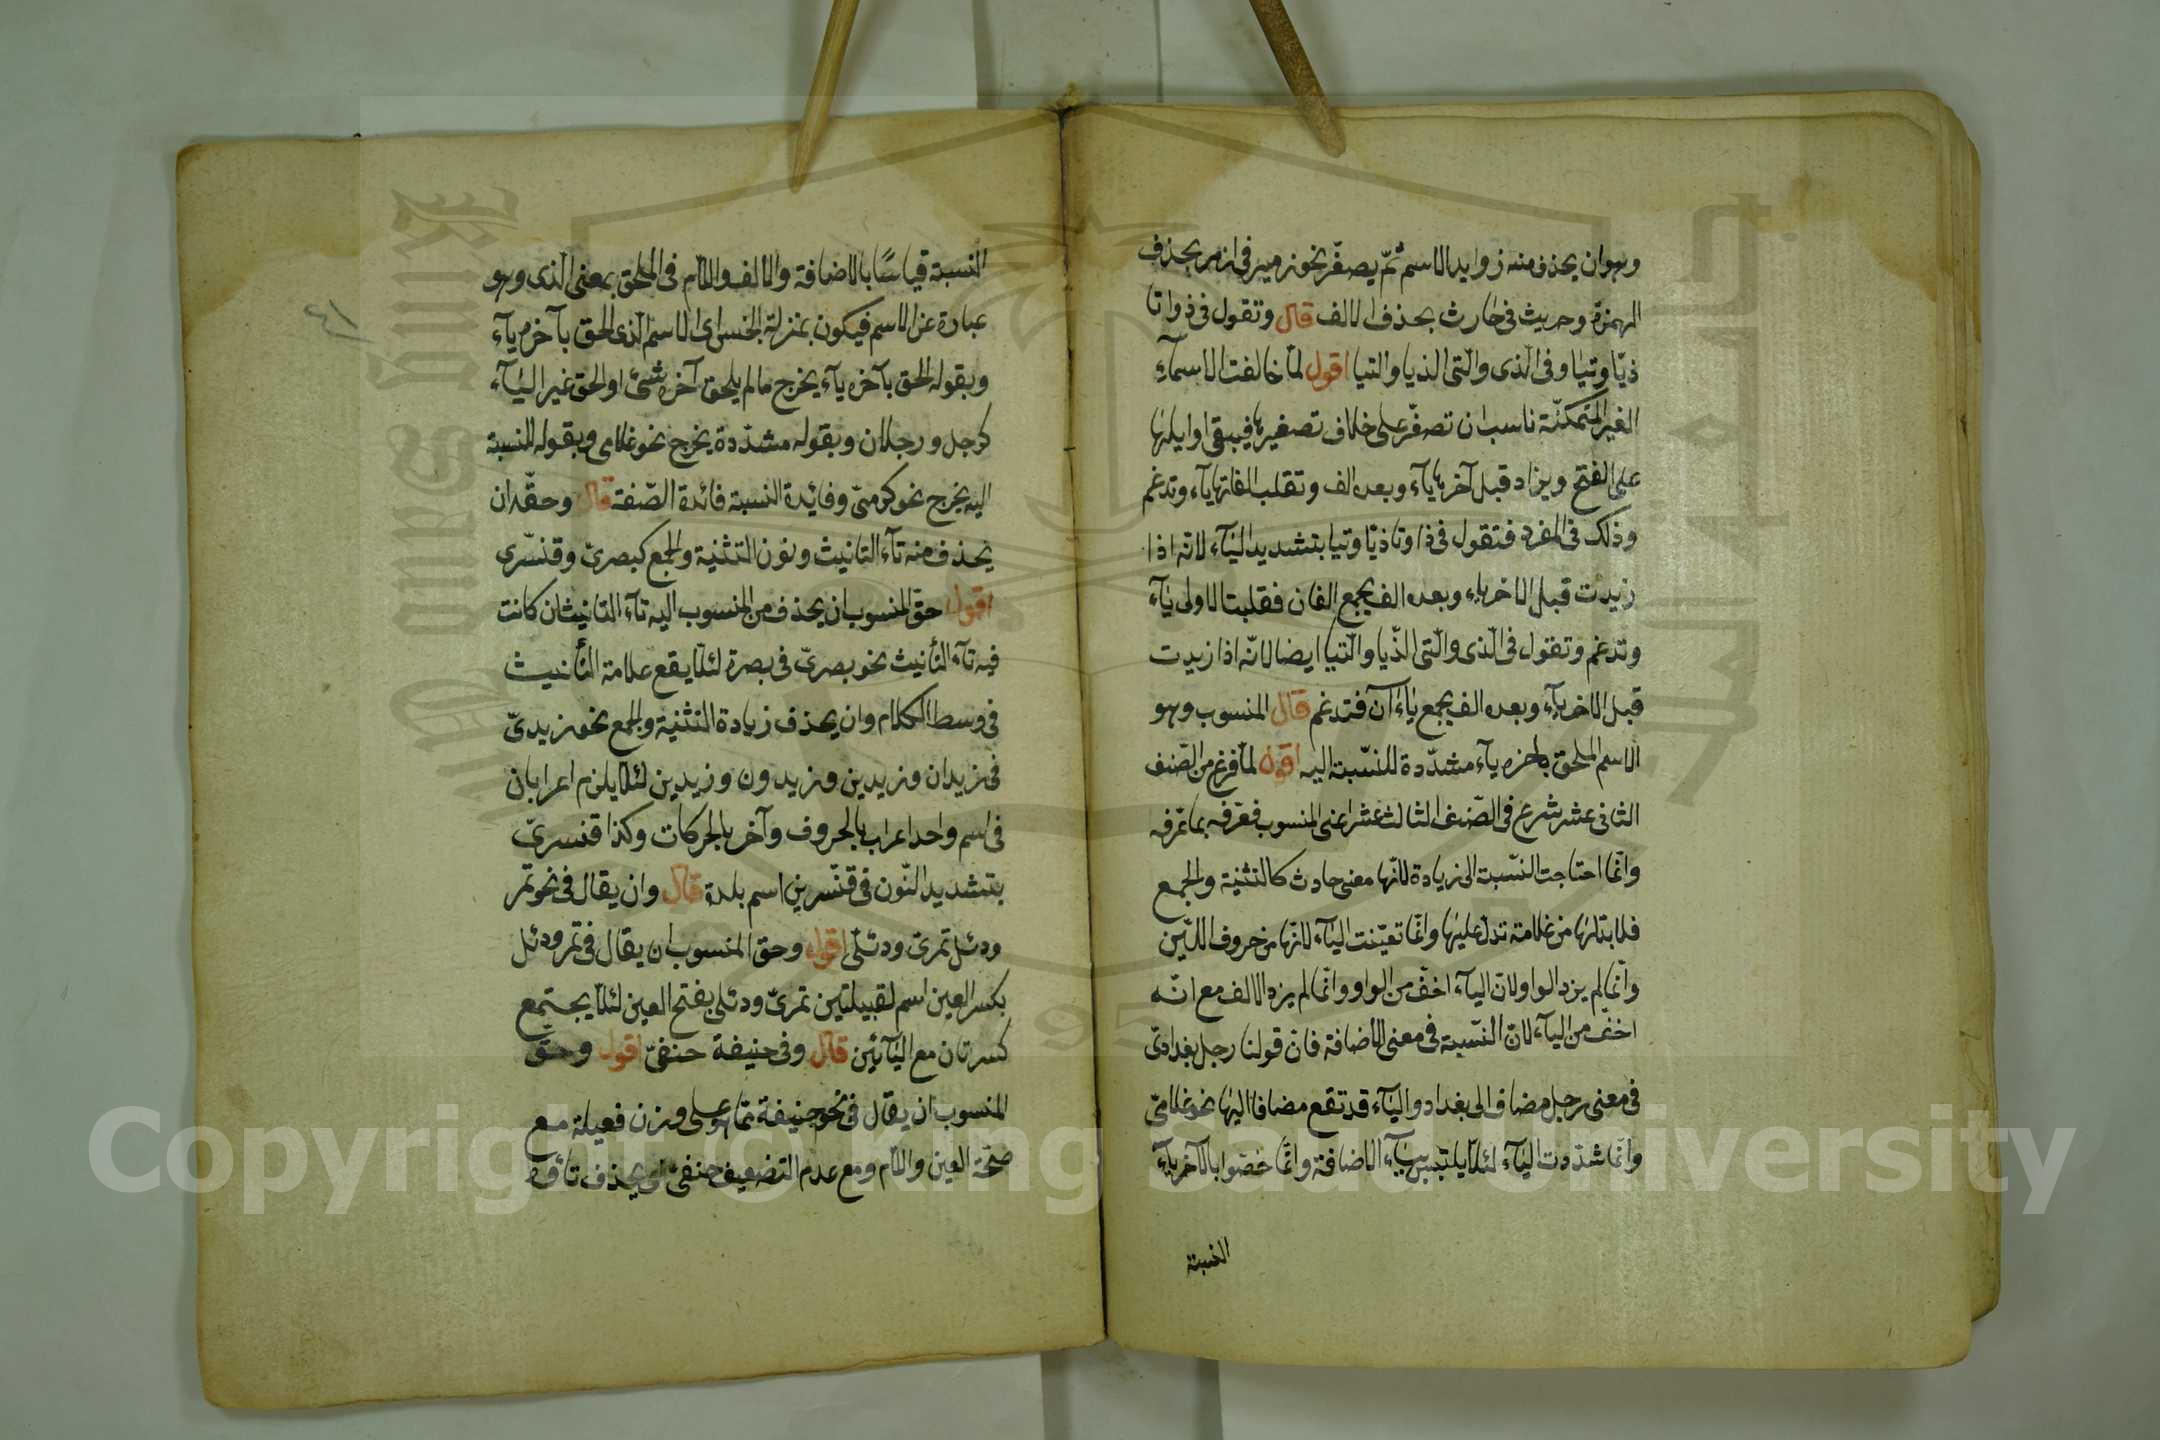 وهو ان يحذف منه زوايد الاسم ثمّ يصغّر نحو زمير فى ازمر بحذف
الهمزة وحريث فى حارث بحذف الالف قال وتقول فى ذا وتا
ذيّا وتيّا وفى الّذى والّتى الذيا والتيا اقول لمّا خالفت الاسمآء
الغير المتمكنّة ناسب ان تصغّر على خلاف تصغيرها فيبقى اوايلها
على الفتح ويزاد قبل آخرها يآء وبعده الف وتقلب الفاتها يآء وتدغم
وذلك فى المفرد فتقول فى ذا وتا ذيّا وتيا بتشديد اليآء لانّه اذا
زيدت قبل الاخر ياء وبعده الف يجمع الفان فقلبت الاولى يآء
وتدغم وتقول فى الّذى والّتى الذّيا والّتيا ايضا لانّه اذا زيدت
قبل الاخر يآء وبعده الف يجمع ياءآن فتدغم قال المنسوب وهو
الاسم الملحق باخره يآء مشدّدة للنّسبة اليه اقول لمّا فرغ من الصّنف
الثانى عشر شرع فى الصّنف الثالث عشر اعنى المنسوب فعرّفه بما عرّفه
وانّما احتاجت النّسبة الى زيادة لانّها معنى حادث كالتثنية والجمع
فلا بدّ لها من علامة تدلّ عليها وانّما تعيّنت اليآء لانّها من حروف اللّين
وانّما لم يزد الواو لانّ اليآء اخفّ من الواو وانّما لم يزد الالف مع انّه
اخفّ من اليآء لانّ النّسبة فى معنى الاضافة فانّ قولنا رجل بغدادىّ
فى معنى رجل مضاف الى بغداد واليآء قد تقع مضافا اليها نحو غلامىّ
وانّما شدّدت اليآء لئلّا يلتبس بيآء الاضافة وانّما خصّوا بالآخر يآء
النسبة
النسبة قياسًا بالاضافة والالف واللّام فى الملحق بمعنى الّذى وهو
عبارة عن الاسم فيكون بمنزلة الجنس اى الاسم الّذى الحق بآخره يآء
وبقوله الحق بآخره يآء يخرج ما لم يلحق آخره شئ او الحق غير اليآء
كرجل ورجلان وبقوله مشدّدة يخرج نحو غلامى وبقوله للنسبة
اليه يخرج نحو كرسىّ وفائدة النسبة فائدة الصّفة قال وحقّه ان
يحذف منه تآء التانيث ونون التثنية والجمع كبصرىّ وقنسّرى
اقول حقّ المنسوب ان يحذف من المنسوب اليه تآء التانيث ان كانت
فيه تآء التأنيث نحو بصرىّ فى بصرة لئلّا يقع علامة التأنيث
فى وسط الكلام وان يحذف زيادة التثنية والجمع نحو زيدىّ
فى زيدان وزيدين وزيدون وزيدين لئلّا يلزم اعرابان
فى اسم واحد اعراب بالحروف وآخر بالحركات وكذا قنسرىّ
بتشديد النّون فى قنّسرين اسم بلدة قال وان يقال فى نحو نمر
ودئل نمرىّ ودئلىّ اقول وحق المنسوب ان يقال فى نمر ودئل
بكسر العين اسم لقبيلتين نمرىّ ودئلى بفتح العين لئلّا يجتمع
كسرتان مع اليآئين قال وفى حنيفة حنفىّ اقول وحقّ
المنسوب ان يقال فى نحو حنيفة ممّا هو على وزن فعيلة مع
صحّة العين واللّام ومع عدم التضعيف حنفىّ اى يحذف تاؤه
٤١
Copyright © King Saud University